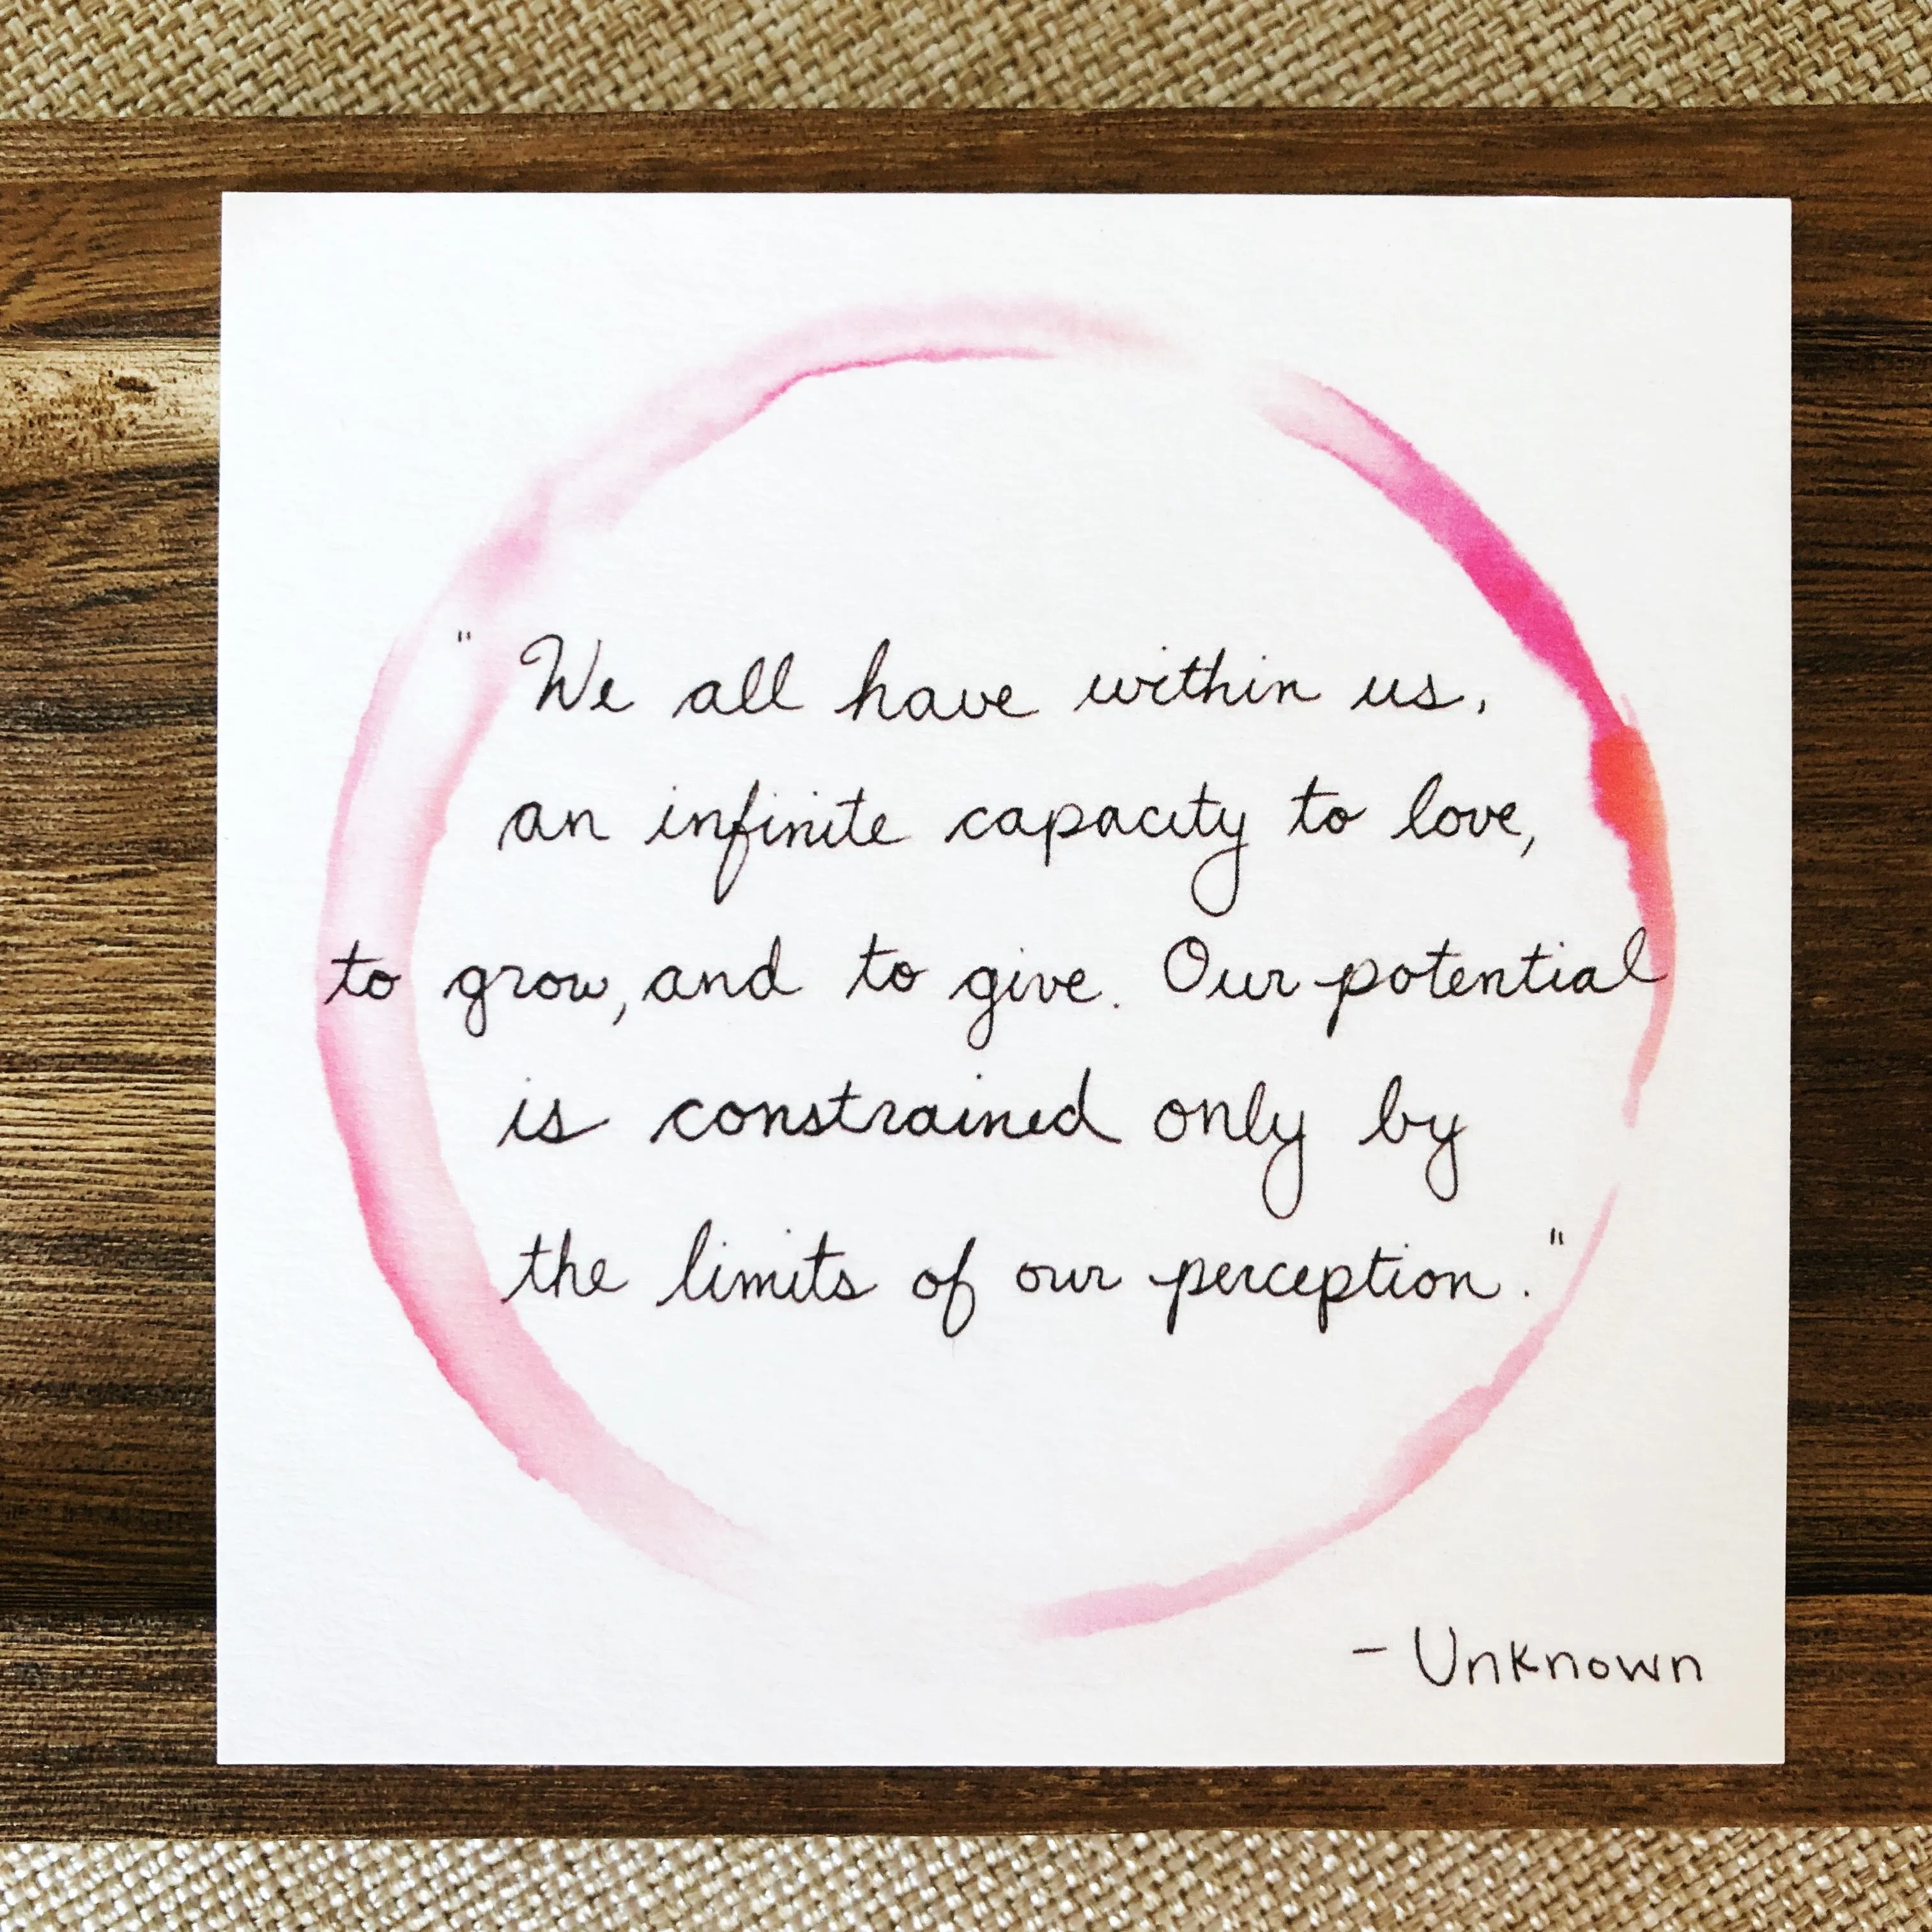 " We all have within us,
an infinite capacity to love,
to grow, and to give. Our potential
is constrained only by
the limits of our perception."
- Unknown